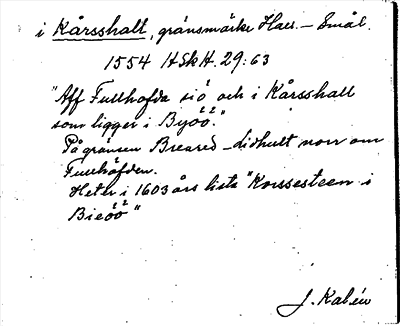 i Kårsshalt, gränsmärke Hall. – Smål.
1554 HSkH. 29:63
"Aff Fullhofda sió och i Kårsshall
som ligger i Byöö."
På gränsen Breared – Lidhult norr om
Fullhöfden.
Heter i 1603 års lista "Korssesteen i
Bieöö"
J. Kalén